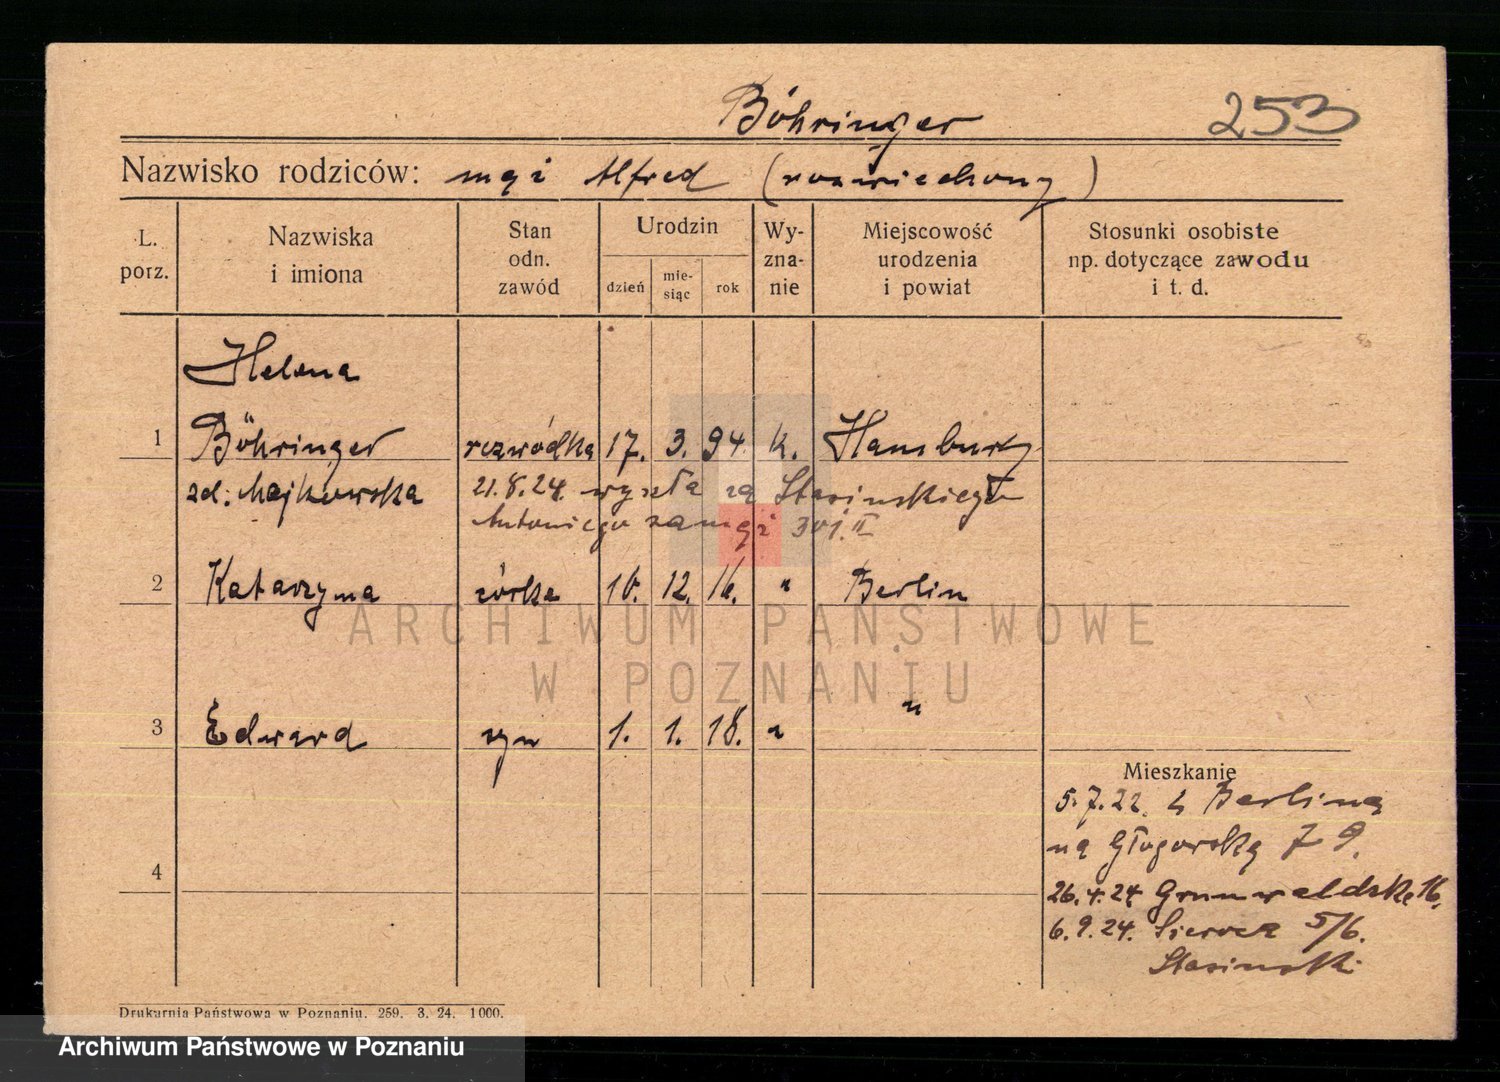 Böhringer 253
Nazwisko rodziców: mąż Alfred (rozwiedziony)
L. porz.
Nazwiska i imiona
Stan odn. zawód
Urodzin
dzień
mie-siąc
rok
Wy-zna-nie
Miejscowość urodzenia i powiat
Stosunki osobiste np. dotyczące zawodu i t. d.
Helena
1 Böhringer rozwódka 17. 3. 94. k. Hamburg
zd: Majkowska 21.8.24. wyszła za Stasinskiego
Antoniego zamąż 301.II
2 Katarzyna córka 10. 12. 16. " Berlin
ARCHIWUM PAŃSTWOWE
W POZNANIU
3 Edward syn 1. 1. 18. " "
Mieszkanie
5.7.22. z Berlina
na Głogowską 79.
4
26.4.24 Grunwaldska 16.
6.9.24. Sieroca 5/6.
Stasinski
Drukarnia Państwowa w Poznaniu. 259. 3. 24. 1000.
Archiwum Państwowe w Poznaniu